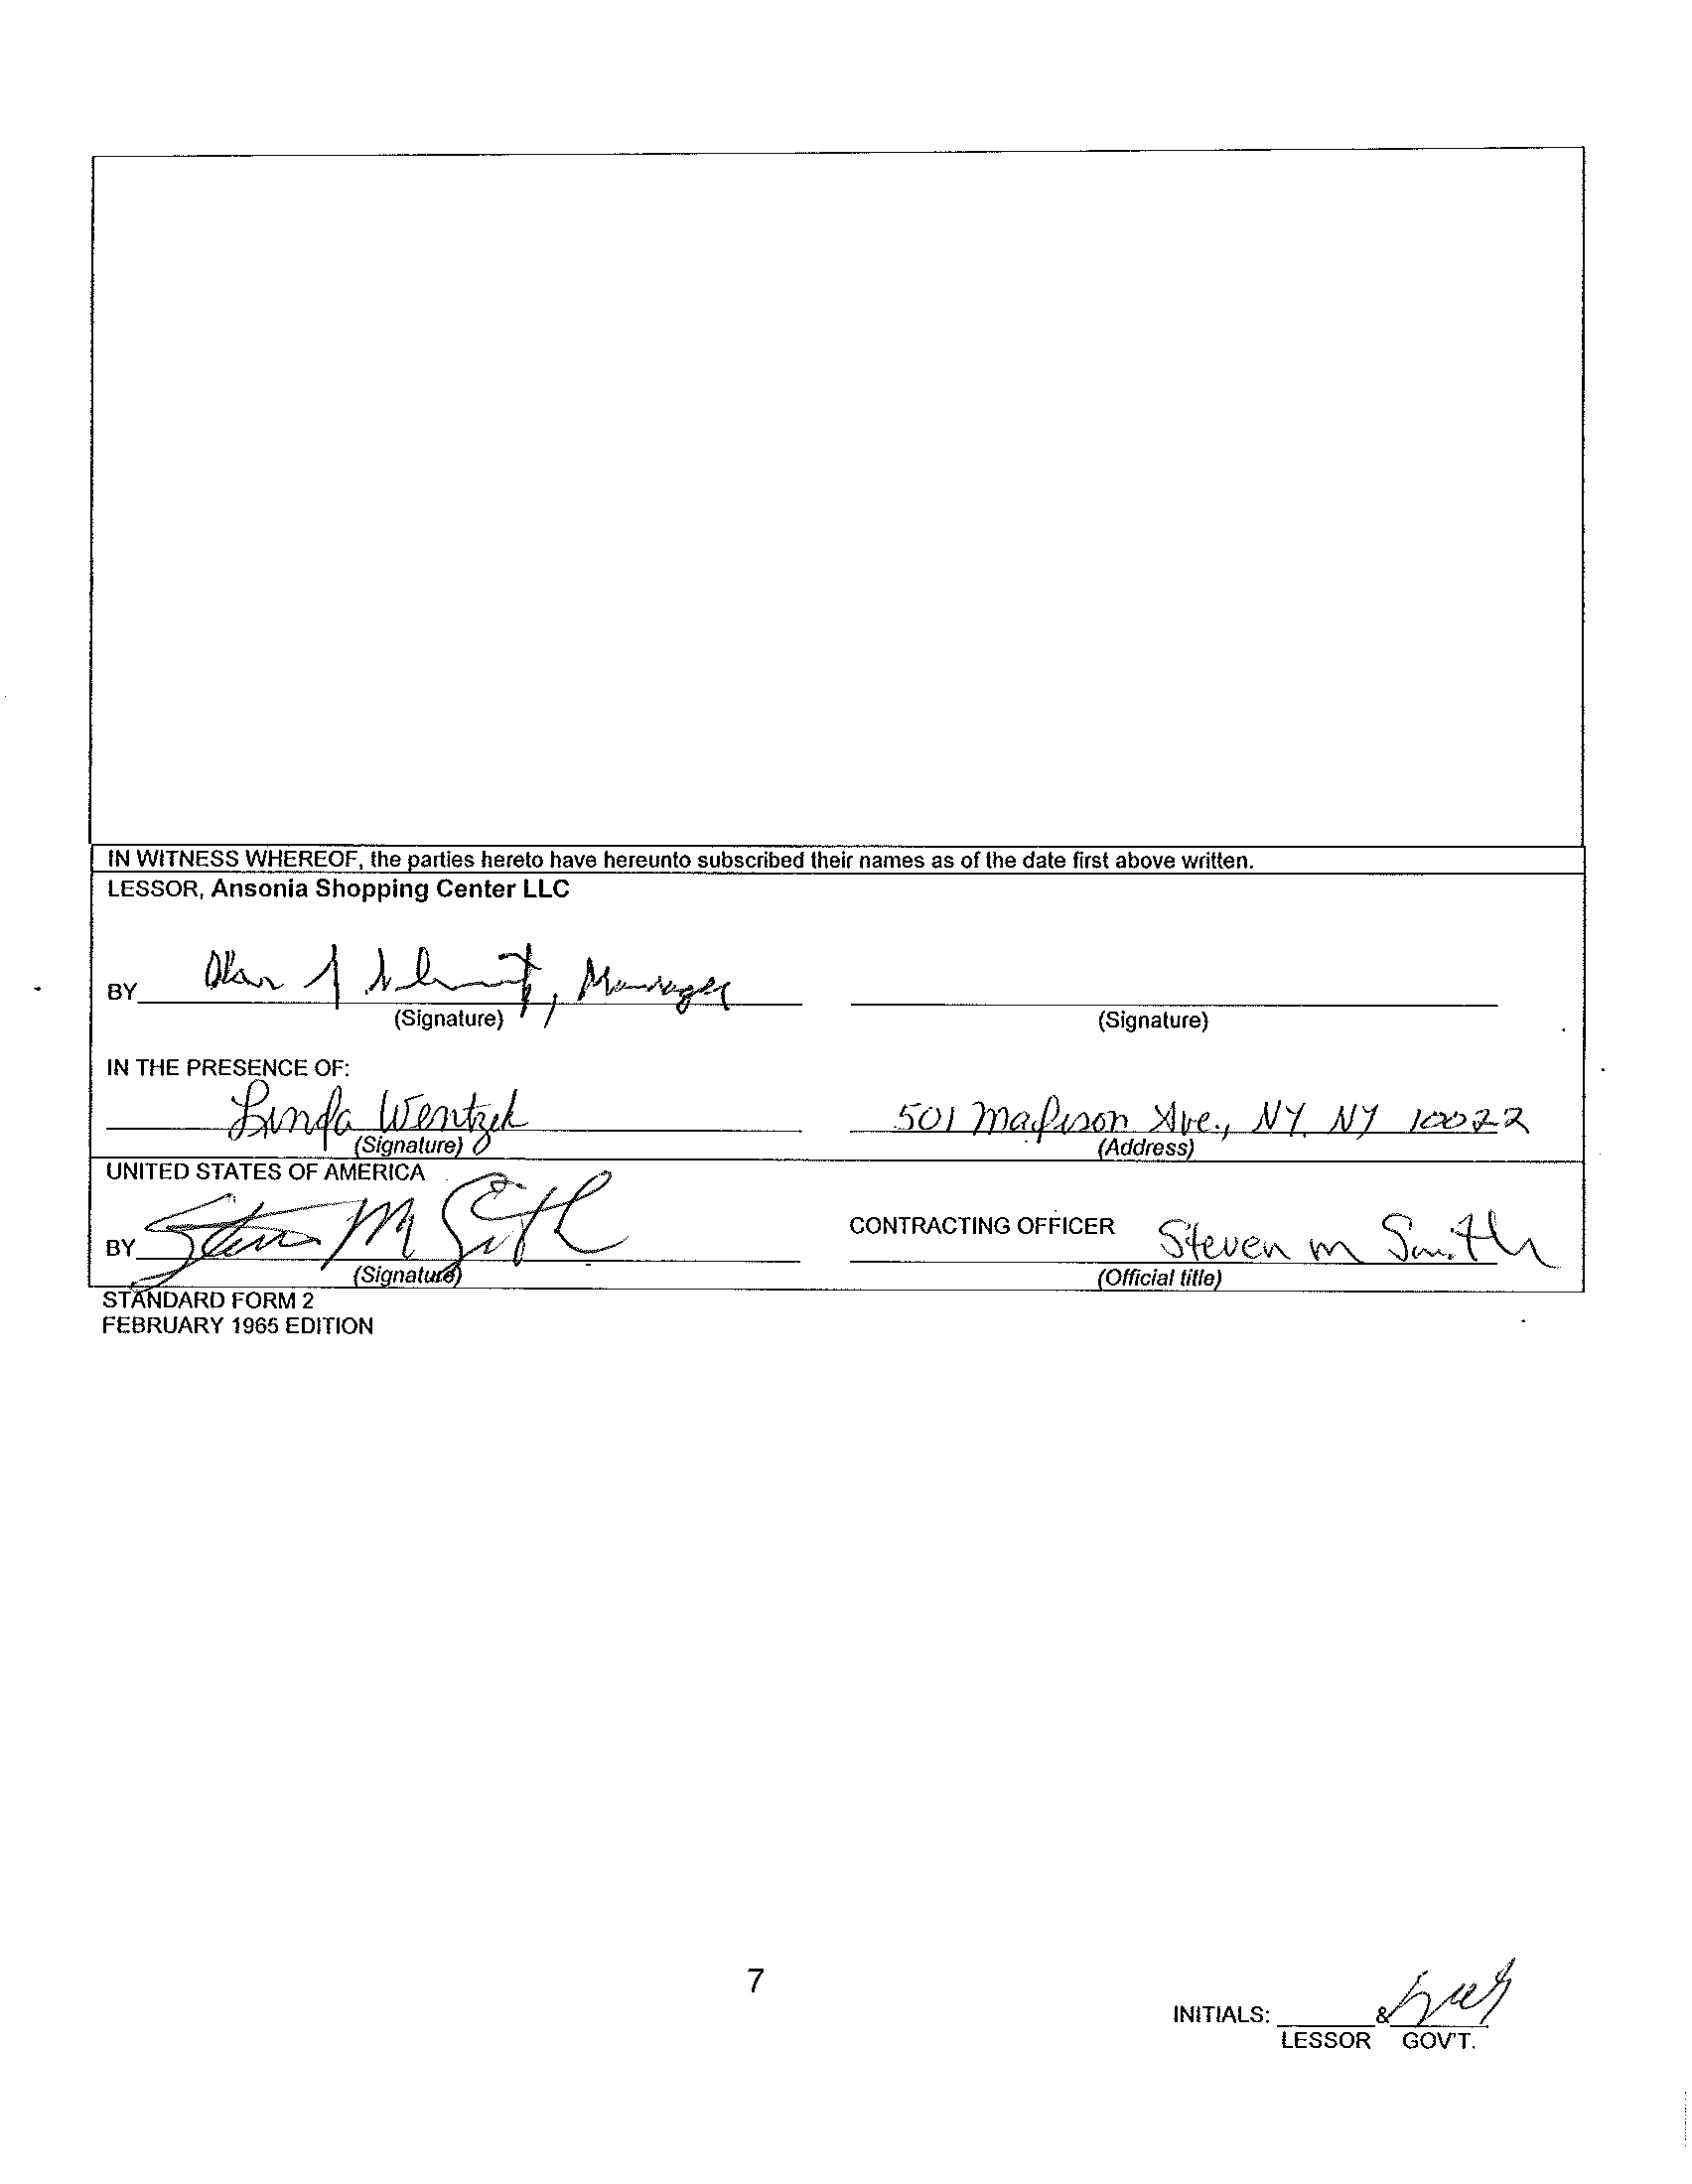 IN WITNESS WHEREOF, the parties hereto have hereunto subscribed their names as of the date first above written.
LESSOR, Ansonia Shopping Center LLC
BY Alan J , Manager
(Signature) (Signature)
IN THE PRESENCE OF:
Linda Wentzek 501 Madison Ave., NY, NY 10022
(Signature) (Address)
UNITED STATES OF AMERICA
BY Steven M Smith CONTRACTING OFFICER Steven M Smith
(Signature) (Official title)
STANDARD FORM 2
FEBRUARY 1965 EDITION
7
INITIALS: &
LESSOR GOV'T.